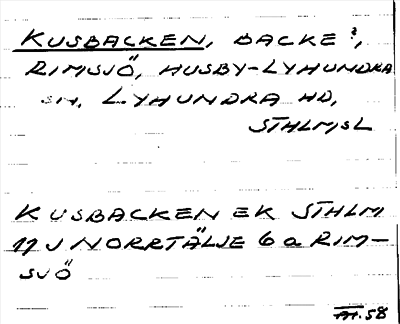 KUSBACKEN, BACKE?,
RIMSJÖ, HUSBY-LYHUNDRA
SN. LYHUNDRA HD,
STHLMSL
KUSBACKEN EK STHLM
11 J NORRTÄLJE 6 a RIM-
SJÖ
58